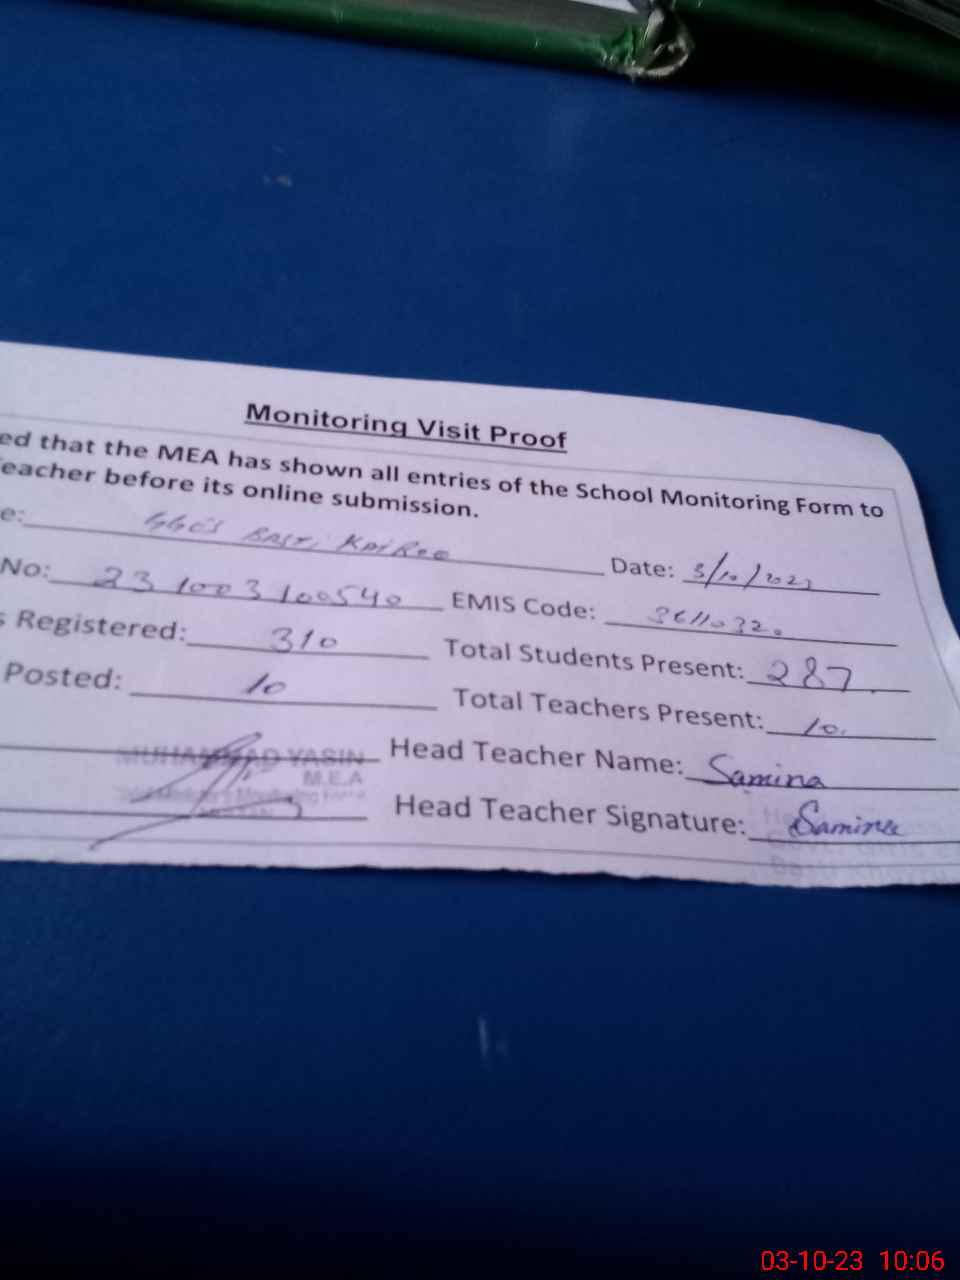 Monitoring Visit Proof
ed that the MEA has shown all entries of the School Monitoring Form to
eacher before its online submission.
e: GGES BASTI Date: 3/10/2023
No: 23 1003 100540 EMIS Code:
s Registered: 310 Total Students Present: 287.
Posted: 10 Total Teachers Present: 10.
MUHAMMAD YASIN Head Teacher Name: Samina
M.E.A
Head Teacher Signature: Samina
03-10-23 10:06